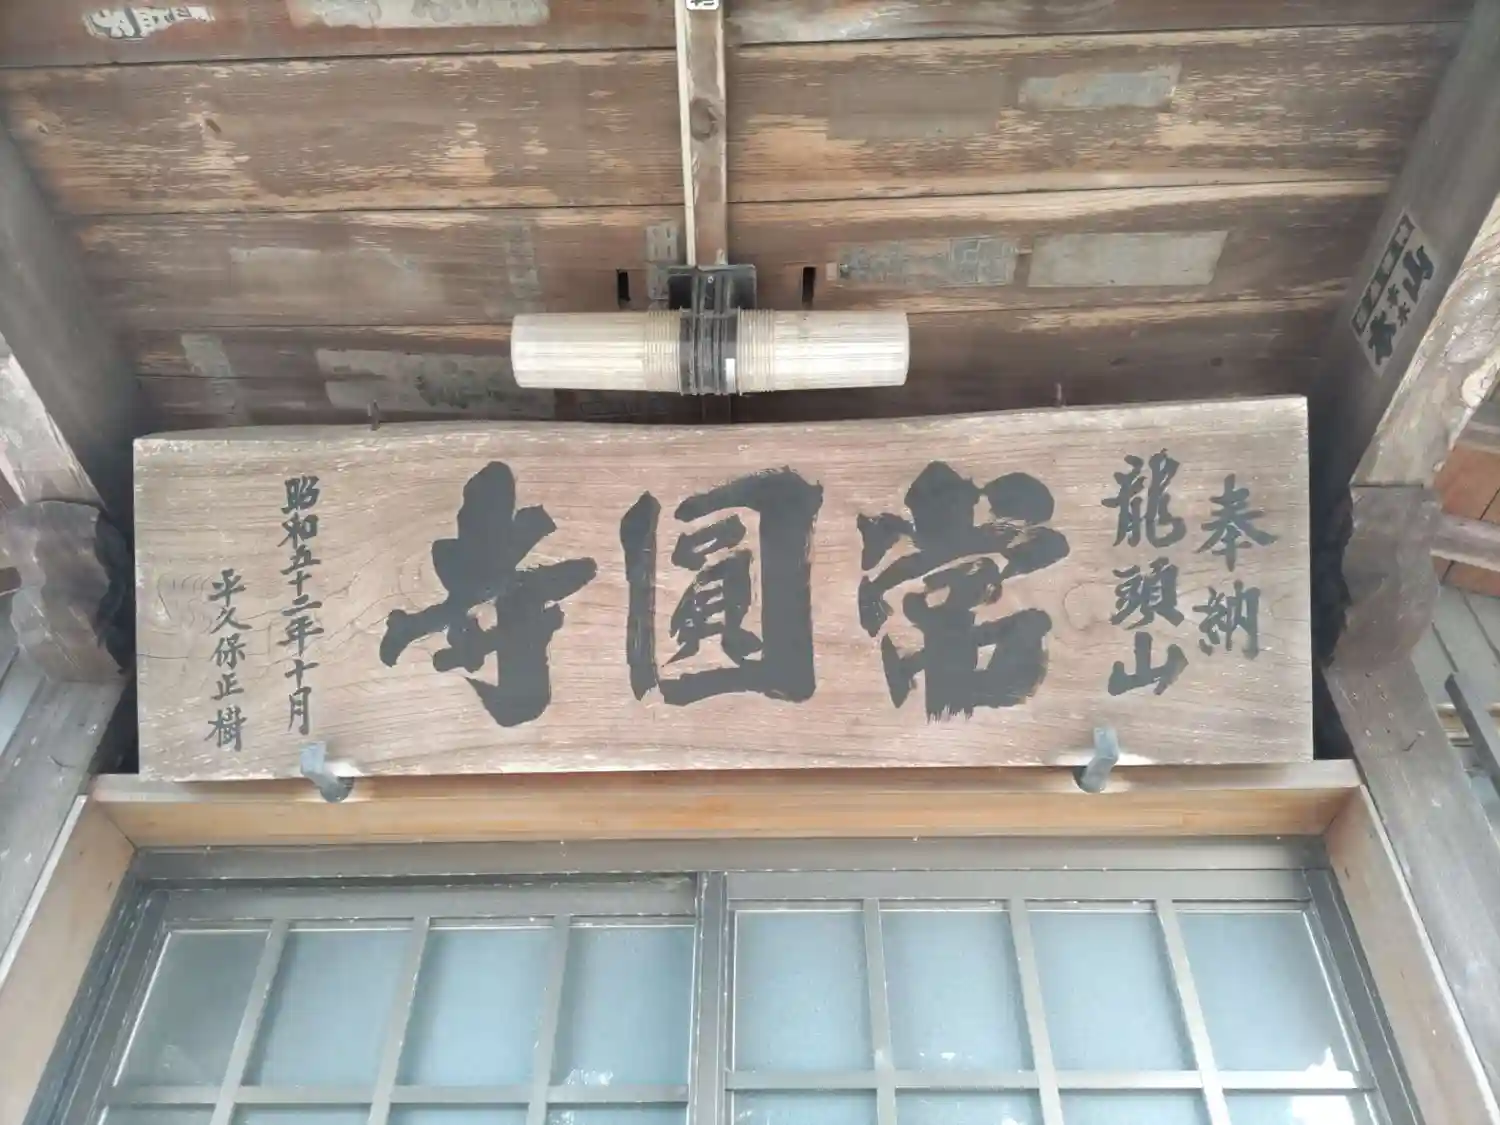 奉納
龍頭山
常圓寺
昭和五十二年十月
平久保正樹